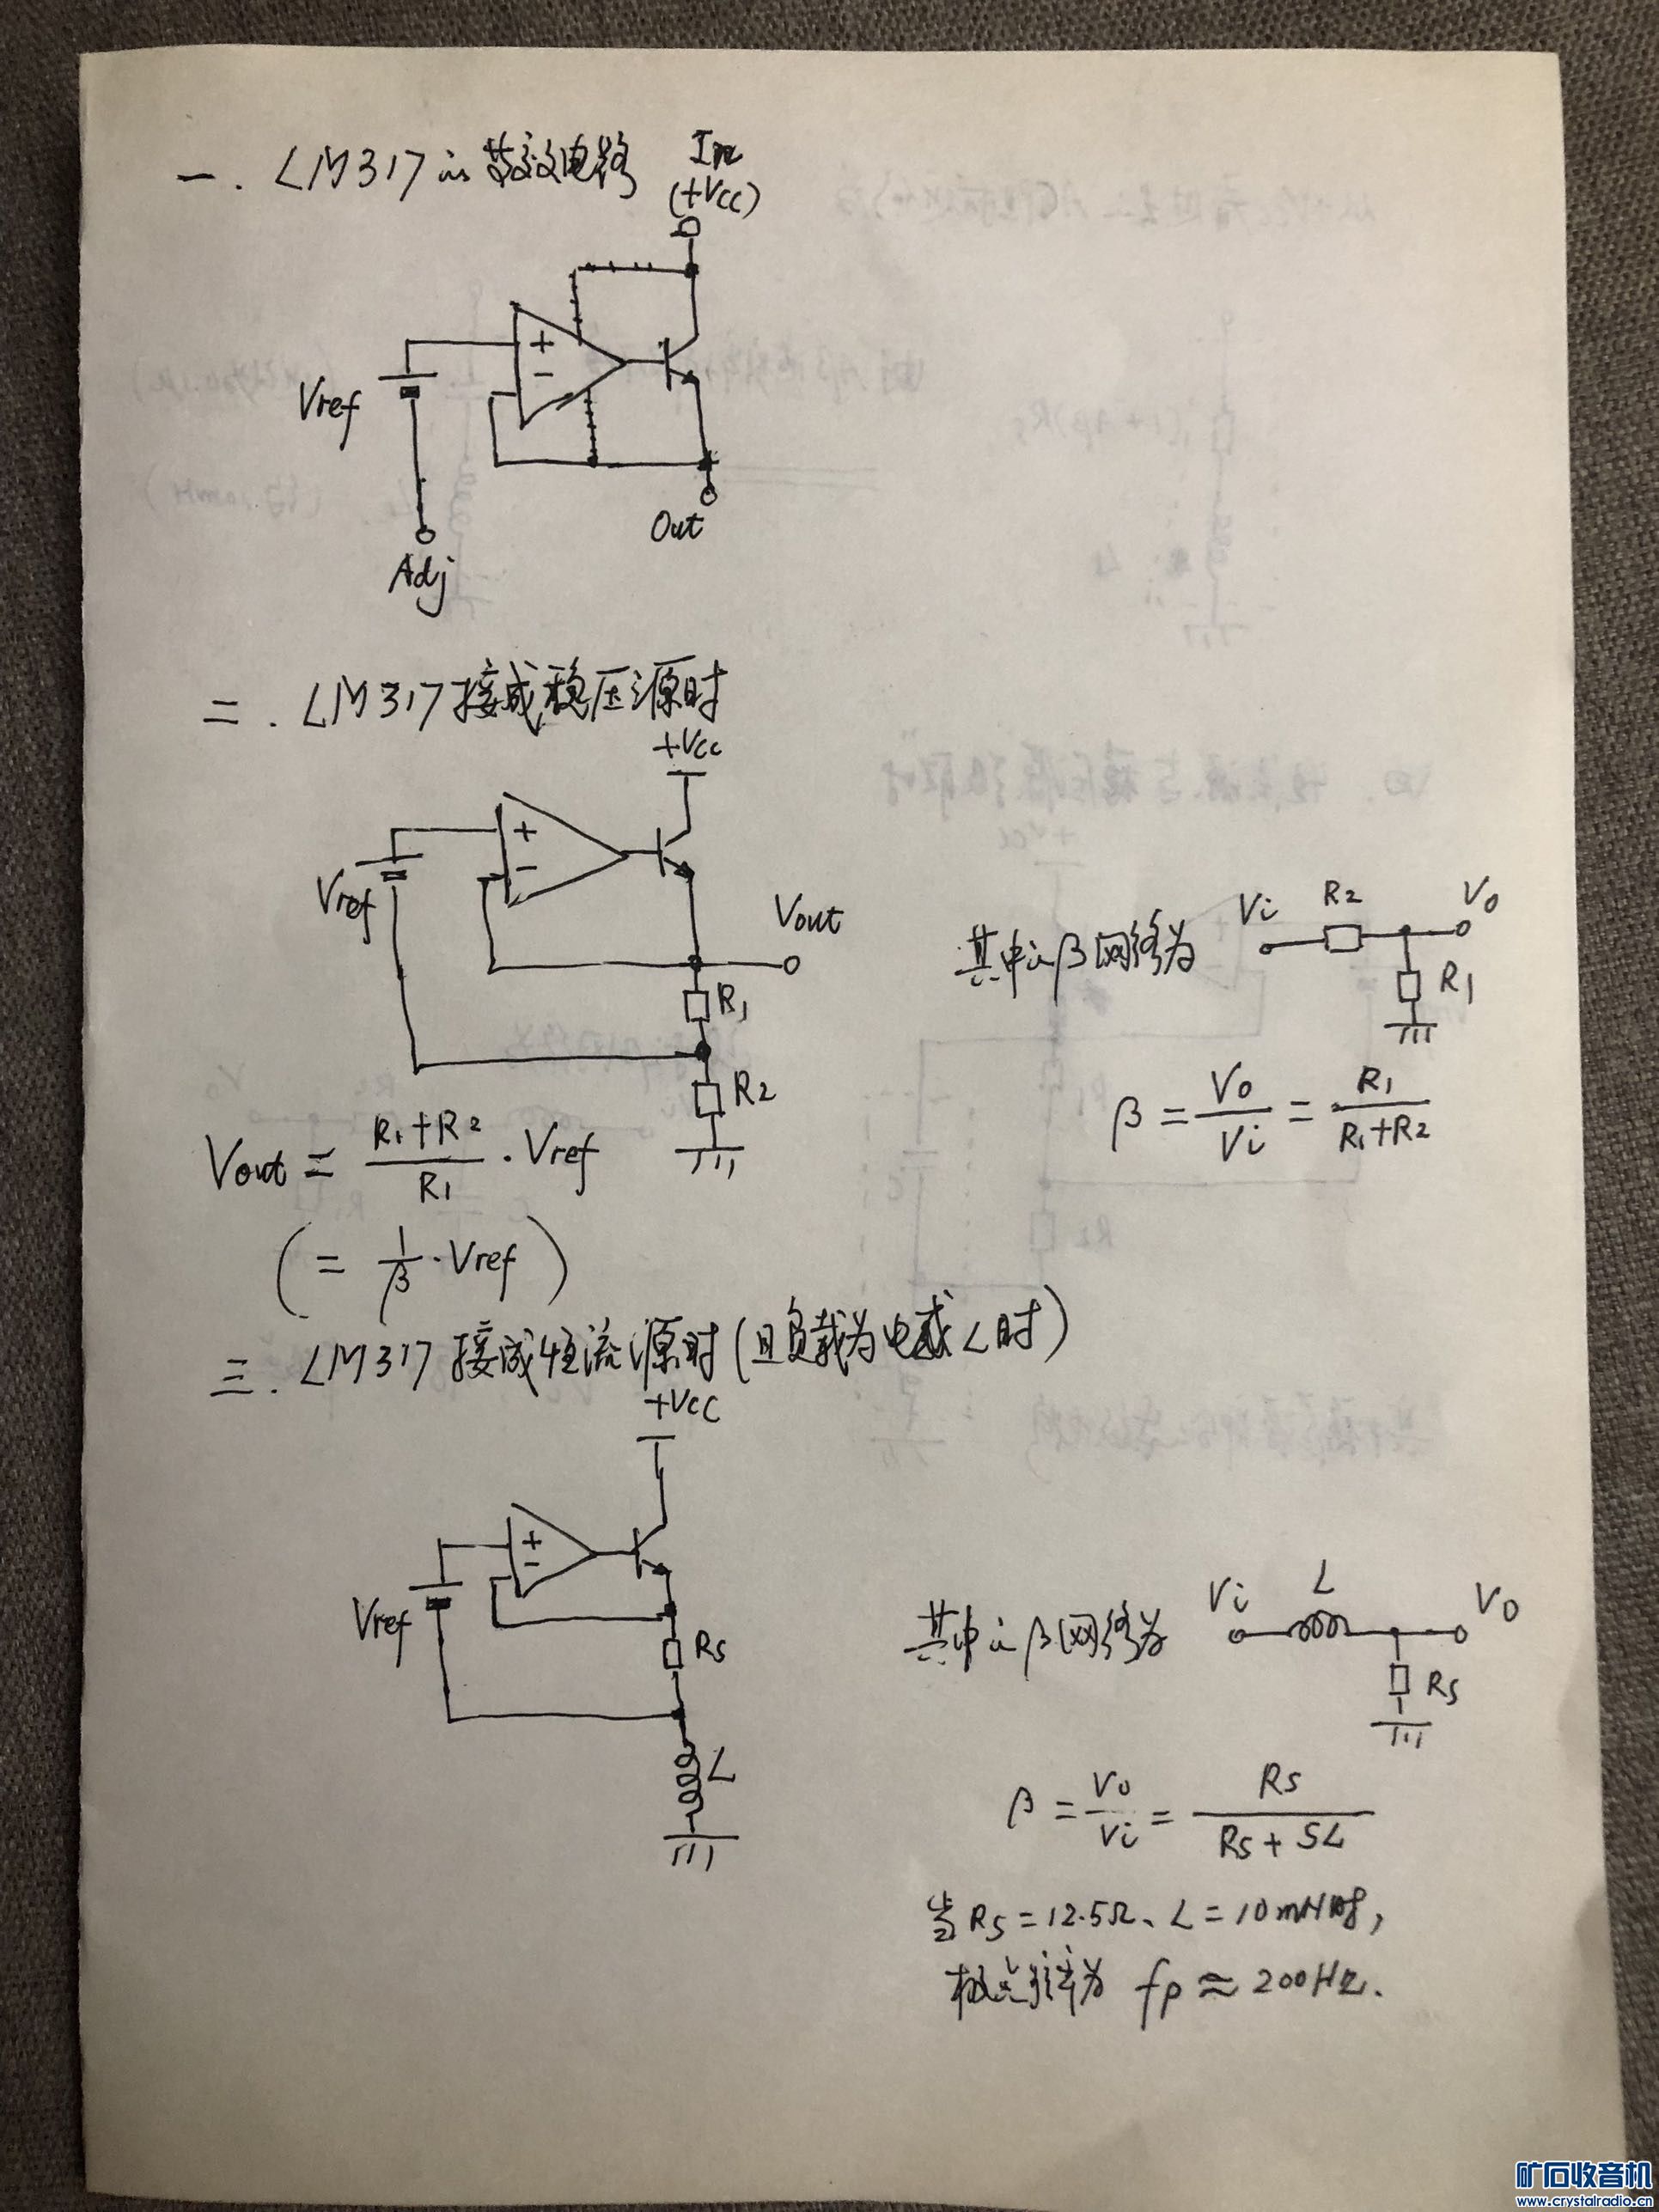 一. LM317的等效电路
In
(+Vcc)
+
-
Vref
Out
Adj
二. LM317接成稳压源时
+Vcc
+
-
Vref
Vout
R1
R2
其中的β网络为
Vi R2 Vo
R1
β = Vo/Vi = R1/(R1+R2)
Vout = (R1+R2)/R1 · Vref
( = 1/β · Vref )
三. LM317接成恒流源时(且负载为电感L时)
+VCC
+
-
Vref
Rs
L
其中的β网络为
Vi L Vo
Rs
β = Vo/Vi = Rs/(Rs+SL)
当Rs=12.5Ω、L=10mH时,
极点频率为 fp ≈ 200Hz.
矿石收音机
www.crystalradio.cn